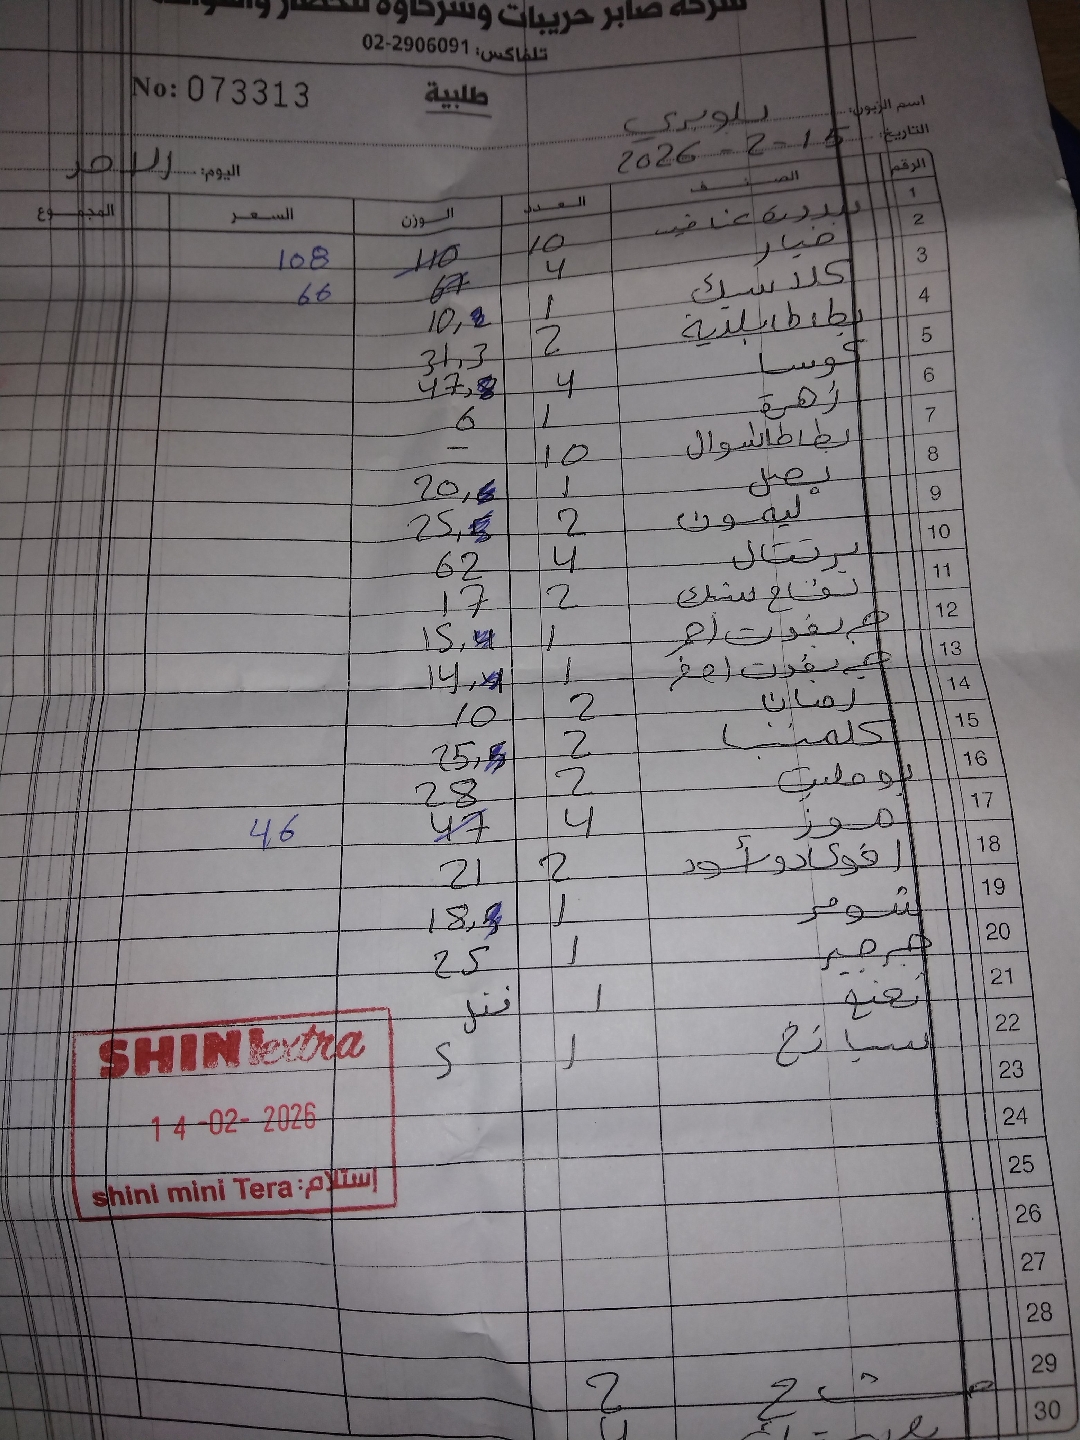 شركة صابر حريبات وشركاؤه للخضار والفواكه
تلفاكس: 02-2906091
No: 073313 طلبية
اسم الزبون:
التاريخ: 15-2-2026
اليوم: الاحد
الرقم الصنف العدد الوزن السعر المجموع
1 بندورة عناقيد 10 110 108
2 خيار 4 67 66
3 كلاسيك 1 10,
4 بطاطا بلدية 2 31,3
5 كوسا 4 47,
6 زهرة 1 6
7 بطاطا شوال 10 –
8 بصل 1 20,
9 ليمون 2 25,
10 برتقال 4 62
11 تفاح 2 17
12 جريفوت احمر 1 15,
13 جريفوت اصفر 1 14,
14 2 10
15 كلمنتينا 2 25,
16 بوملي 2 28
17 موز 4 47 46
18 افوكادو أسود 2 21
19 شومر 1 18,
20 جرجير 1 25
21 نعنع 1
22 سبانخ 1 5
23
24
25
26
27
28
29
30 2
4
SHINI extra
14-02-2026
shini mini Tera :إستلام